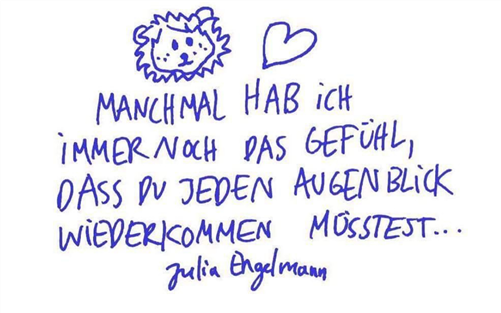 MANCHMAL HAB iCH
iMMER NOCH DAS GEFÜHL,
DASS DU JEDEN AUGENBLICK
WiEDERKOMMEN MÜSSTEST...
Julia Engelmann